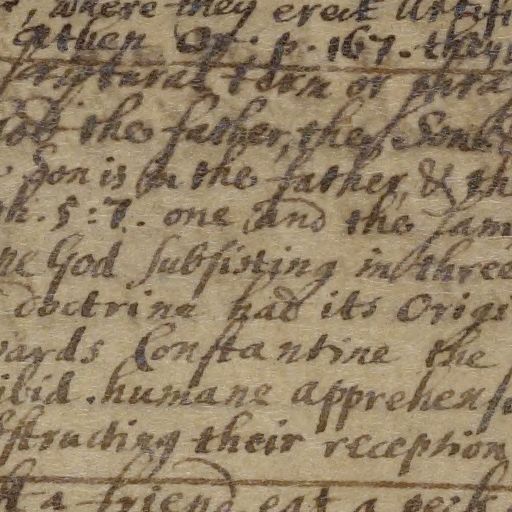 where they erect Artifi
given Or. p. 167. they
scriptural term or phra
God the father, the Sonn
Son is in the father, & th
oh. 5:7. one and the sam
ne God subsisting in three
doctrine had its Origi
wards Constantine the
ibid. humane apprehens
structing their reception
friend eat a peck